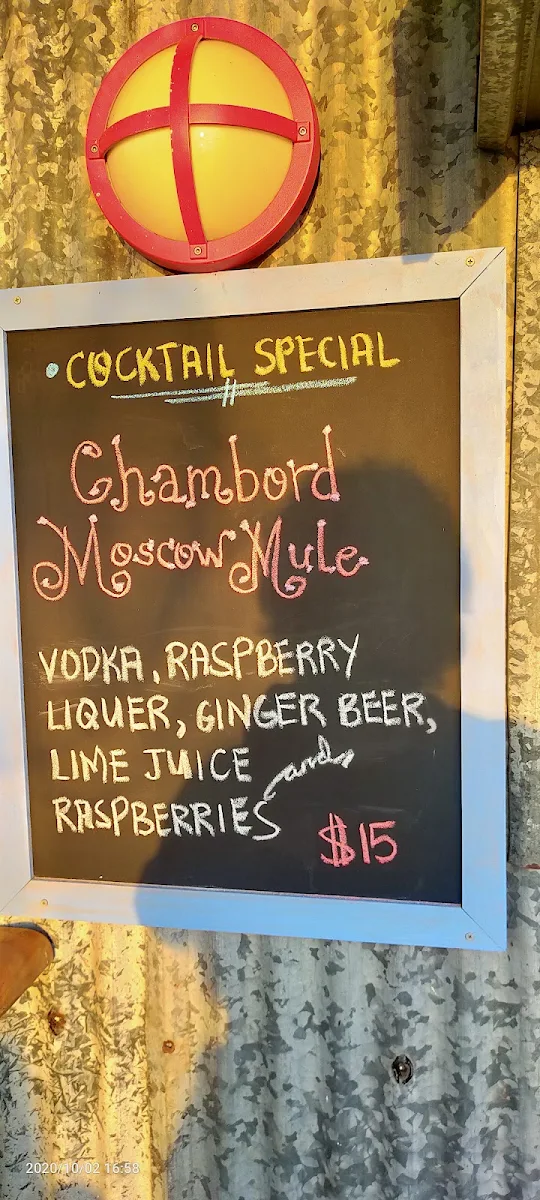 COCKTAIL SPECIAL
Chambord
Moscow Mule
VODKA, RASPBERRY
LIQUER, GINGER BEER,
LIME JUICE and
RASPBERRIES
$15
2020/10/02 16:58